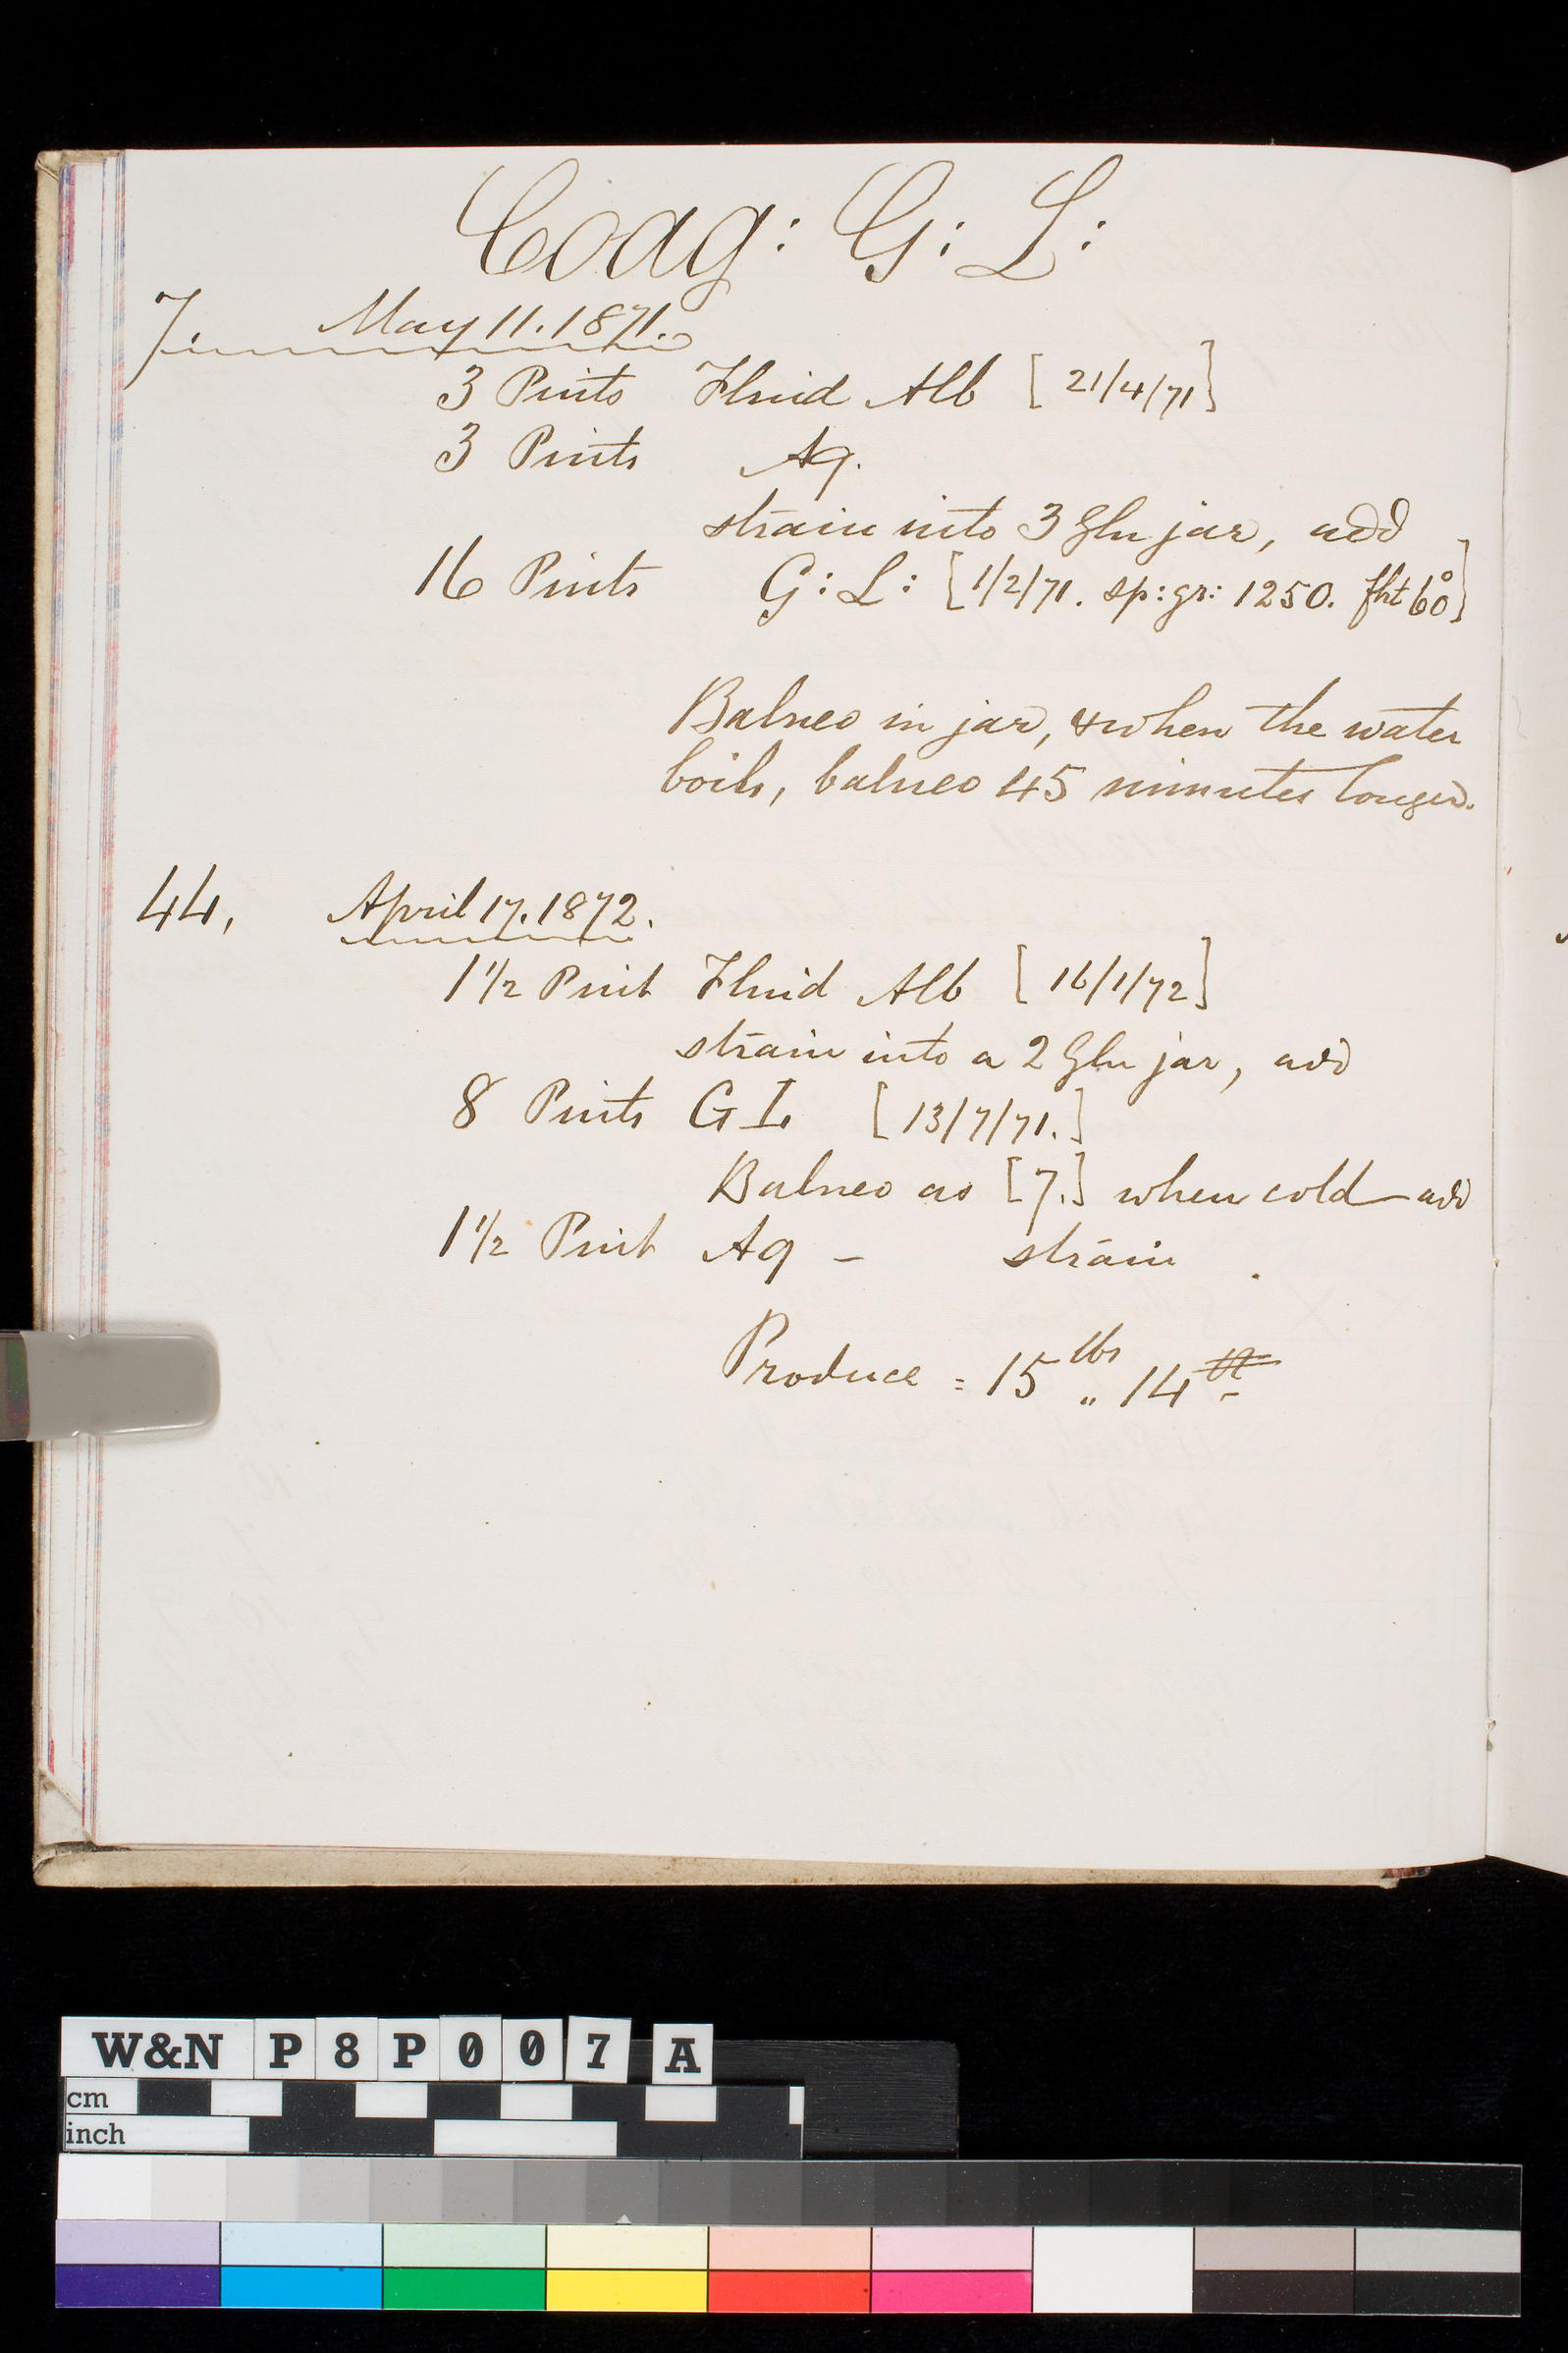 Coag: G: L:
7. May 11. 1871.
3 Pints Fluid Alb [21/4/71]
3 Pints Aq.
strain into 3 Gln jar, add
16 Pints G: L: [1/2/71. sp: gr: 1250. fht 60°]
Balneo in jar, & when the water
boils, balneo 45 minutes longer.
44, April 17. 1872.
1 1/2 Pint Fluid Alb [16/1/72]
strain into a 2 Gln jar, add
8 Pints G L [13/7/71.]
Balneo as [7.] when cold add
1 1/2 Pint Aq - strain.
Produce = 15 lbs " 14
W&N P8P007 A
cm
inch